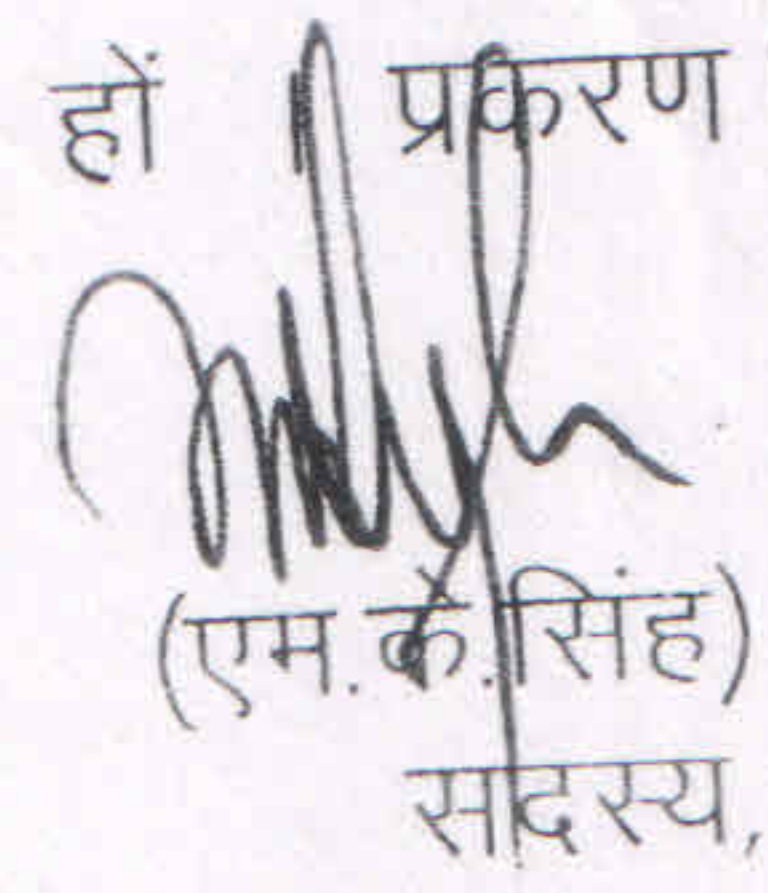 हों प्रकरण
(एम.के.सिंह)
सदस्य,